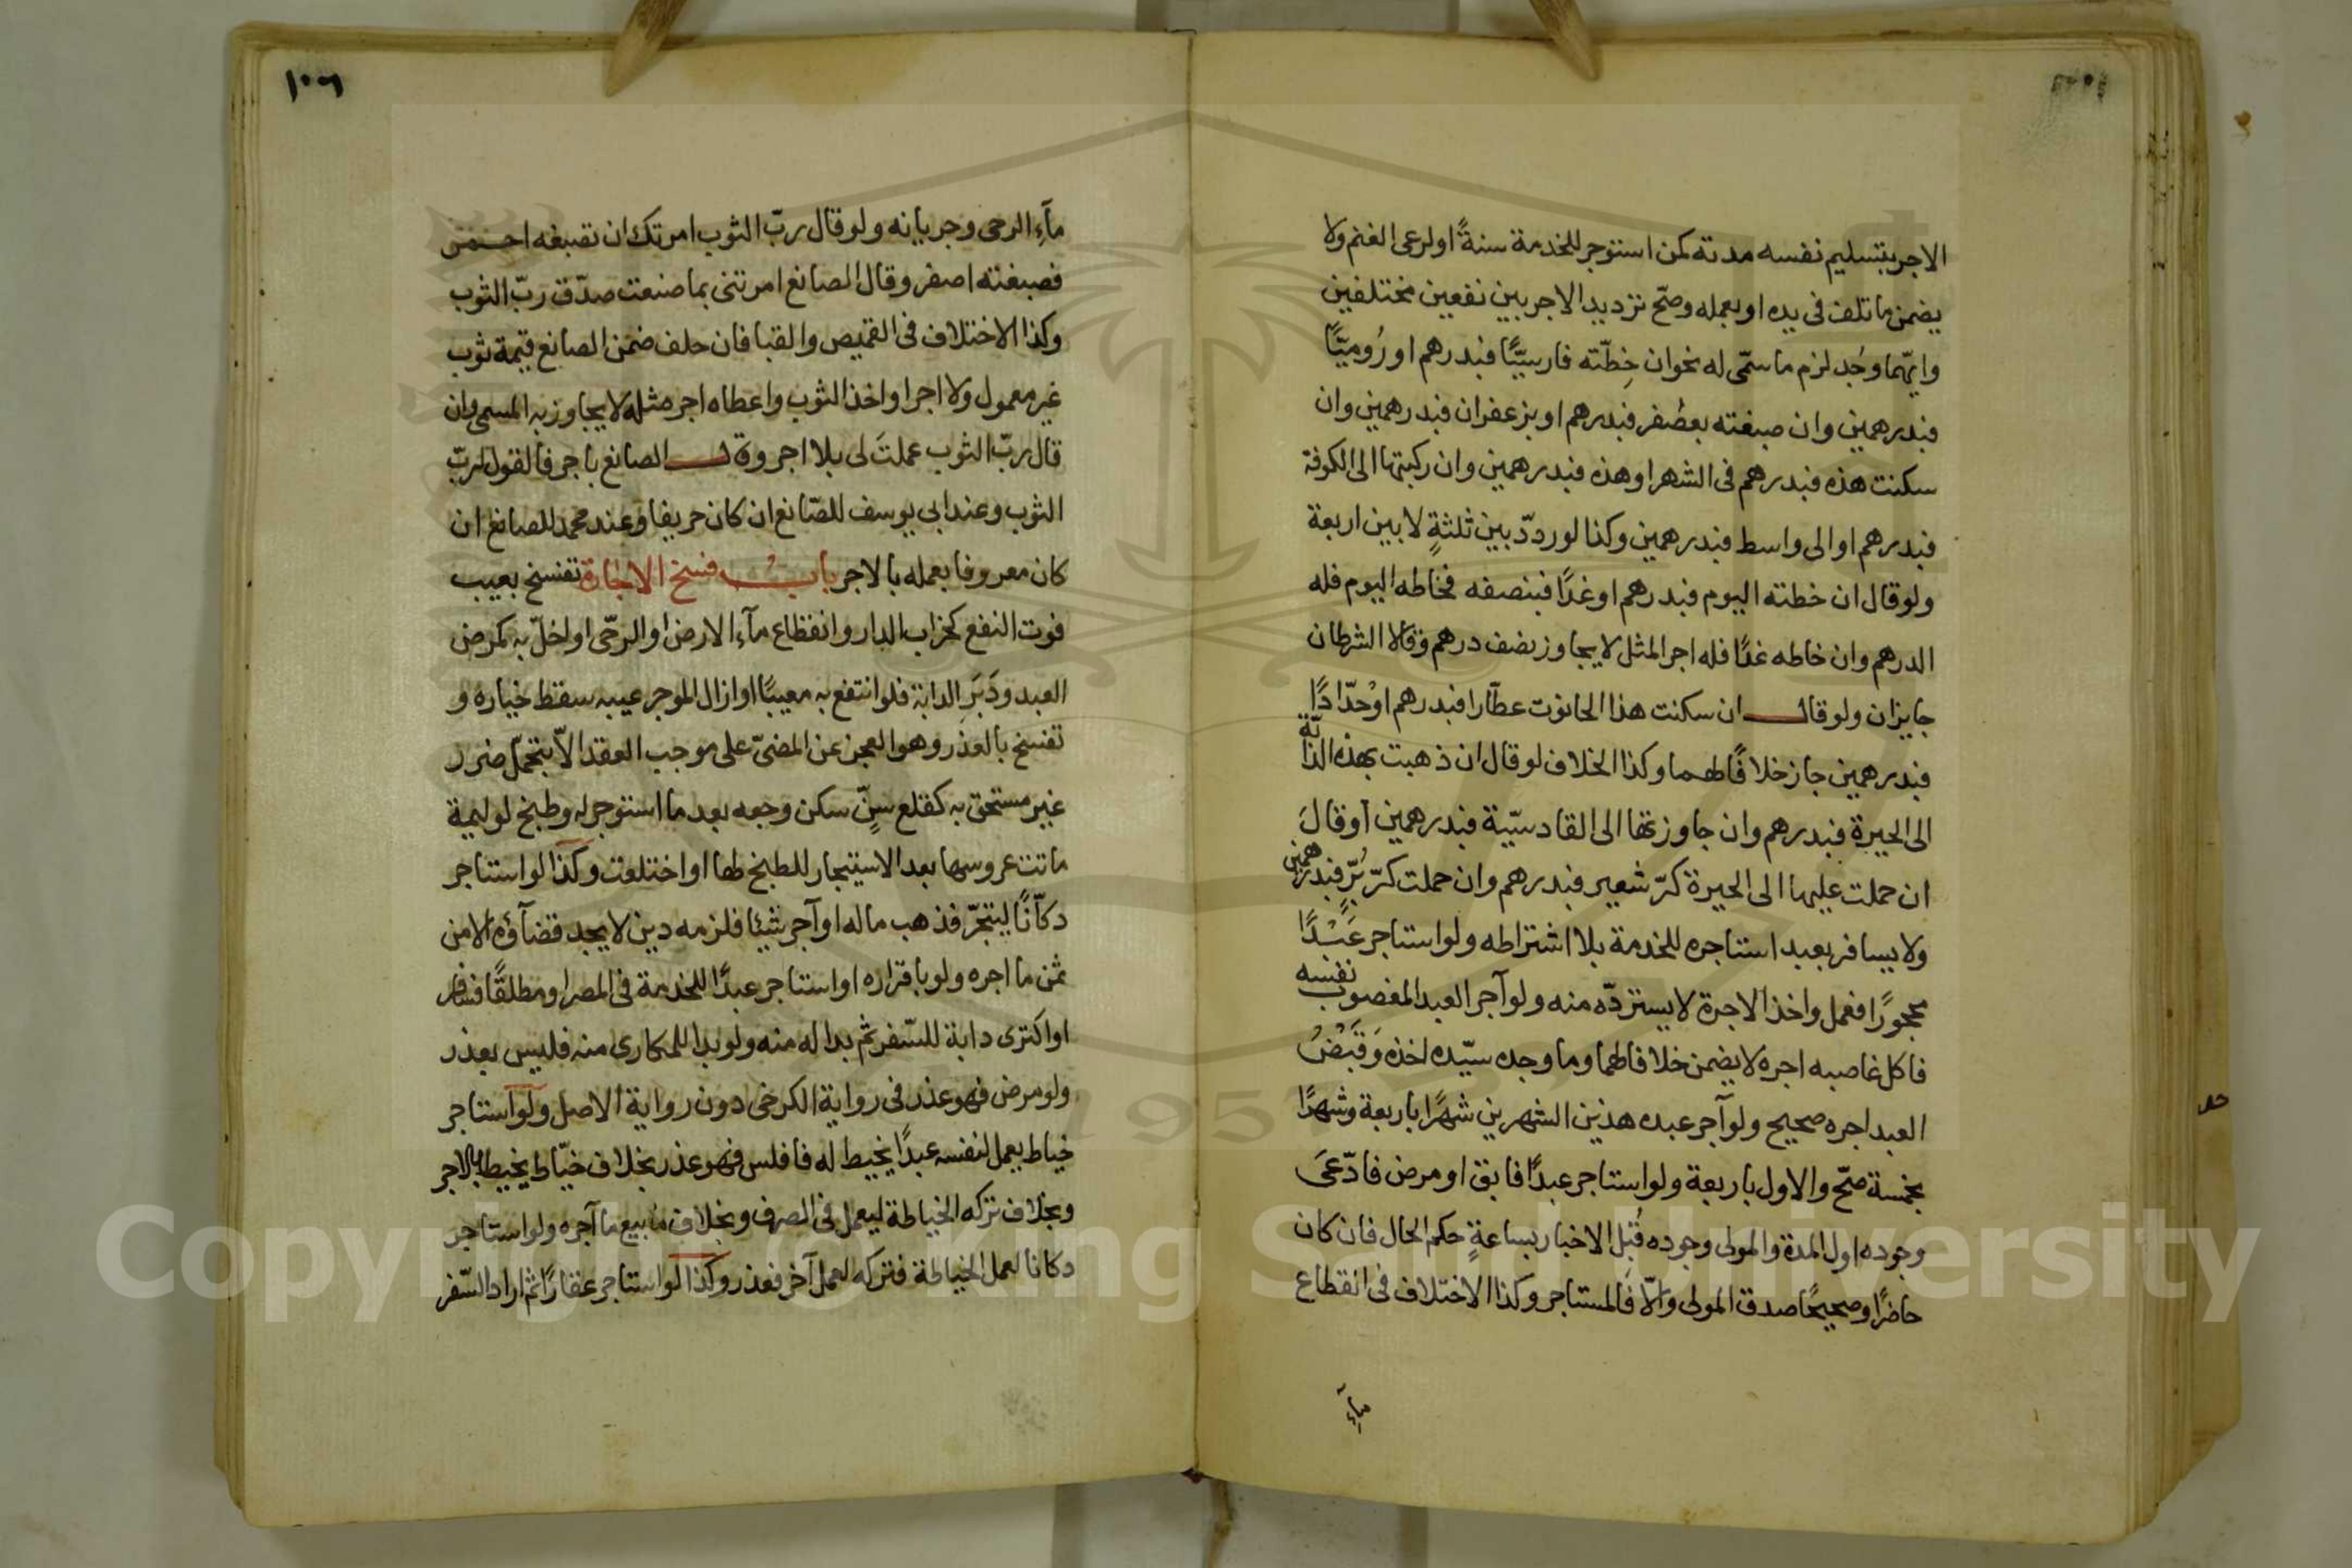 الاجر بتسليم نفسه مدته كمن استوجر للخدمة سنةً اولرعى الغنم ولا
يضمن ما تلف فى يده او بعمله وصحّ ترديد الاجر بين نفعين مختلفين
وايّهما وُجد لزم ما سمّى له نحوان خِطّته فارسيًّا فبدرهم او رُوميًّا
فبدرهمين وان صبغته بعصفر فبدرهم او بزعفران فبدرهمين وان
سكنت هذه فبدرهم فى الشهر او هذه فبدرهمين وان ركبتها الى الكوفة
فبدرهم او الى واسط فبدرهمين وكذا لو ردّد بين ثلثةٍ لا بين اربعة
ولو قال ان خطته اليوم فبدرهم او غدًا فبنصفه فخاطه اليوم فله
الدرهم وان خاطه غدًا فله اجر المثل لا يجاوز نصف درهم وقالا الشرطان
جايزان ولو قال ان سكنت هذا الحانوت عطّارا فبدرهم اوْحدّادًا
فبدرهمين جاز خلافًا لهما وكذا الخلاف لو قال ان ذهبت بهذه الدابّة
الى الحيرة فبدرهم وان جاوزتها الى القادسيّية فبدرهمين اوقالَ
ان حملت عليها الى الحيرة كرّ شعير فبدرهم وان حملت كرّ بُرٍّ فبدرهمين
ولا يسافر بعبد استاجره للخدمة بلا اشتراطه ولو استاجر عَبْدًا
محجورًا فعمل واخذ الاجرة لا يستردّه منه ولو آجر العبد المغصوب نفسه
فاكل غاصبه اجره لا يضمن خلافا لهما وما وجده سيّده اخذه وَقَبْضُ
العبد اجره صحيح ولو آجر عبده هذين الشهرين شهرًا باربعة وشهرًا
بخمسة صحّ والاول باربعة ولو استاجر عبدًا فابق او مرض فادّعَى
وجوده اول المدة والمولى وجوده قُبَيل الاخبار بساعةٍ حكم الحال فان كان
حاضرًا وصحيحًا صدق المولى والّا فالمستاجر وكذا الاختلاف فى انقطاع
مآءِ
١٠٦
مآءِ الرحى وجريانه ولو قال ربّ الثوب امرتك ان تصبغه احمر
فصبغته اصفر وقال الصانع امرتنى بما صنعت صدّق ربّ الثوب
وكذا الاختلاف فى القميص والقبا فان حلف ضمن الصانع قيمة ثوب
غير معمول ولا اجر او اخذ الثوب واعطاه اجر مثله لا يجاوز به المسمى وان
قال ربّ الثوب عملتَ لى بلا اجر وقال الصانع باجر فالقول لربّ
الثوب وعند ابى يوسف للصّانع ان كان حريفا وعند محمد للصانع ان
كان معروفا بعمله بالاجر باب فسخ الاجارة تفسخ بعيب
فوت النفع كخراب الدار وانقطاع مآء الارض او الرحّى او اخلّ به كمرض
العبد ودَبَرِ الدابة فلو انتفع به معيبًا او ازال الموجر عيبه سقط خياره و
تفسخ بالعذر وهو العجز عن المضىّ على موجب العقد الّا بتحمّل ضرر
غير مستحق به كقلع سنٍّ سكن وجعه بعد ما استوجر له وطبخ لوليمة
ماتت عروسها بعد الاستيجار للطبخ لها او اختلعت وكذا لو استاجر
دكّانًا ليتجرّ فذهب ماله او آجر شيئا فلزمه دين لا يجد قضآؤه الا من
ثمن ما اجره ولو باقراره او استاجر عبدًا للخدمة فى المصر او مطلقًا فسافر
او اكترى دابة للسّفر ثم بدا له منه ولو بدا للمكارى منه فليس بعذر
ولو مرض فهو عذر فى رواية الكرخى دون رواية الاصل ولو استاجر
خياط يعمل لنفسه عبدًا يخيط له فافلس فهو عذر بخلاف خيّاط يخيط بالاجر
وبخلاف تركه الخياطة ليعمل فى الصرف وبخلاف بيع ما آجره ولو استاجر
دكانا لعمل الخياطة فتركه لعمل آخر فعذر وكذا لو استاجر عقارًا ثم اراد السّفر
Copyright © King Saud University
1957